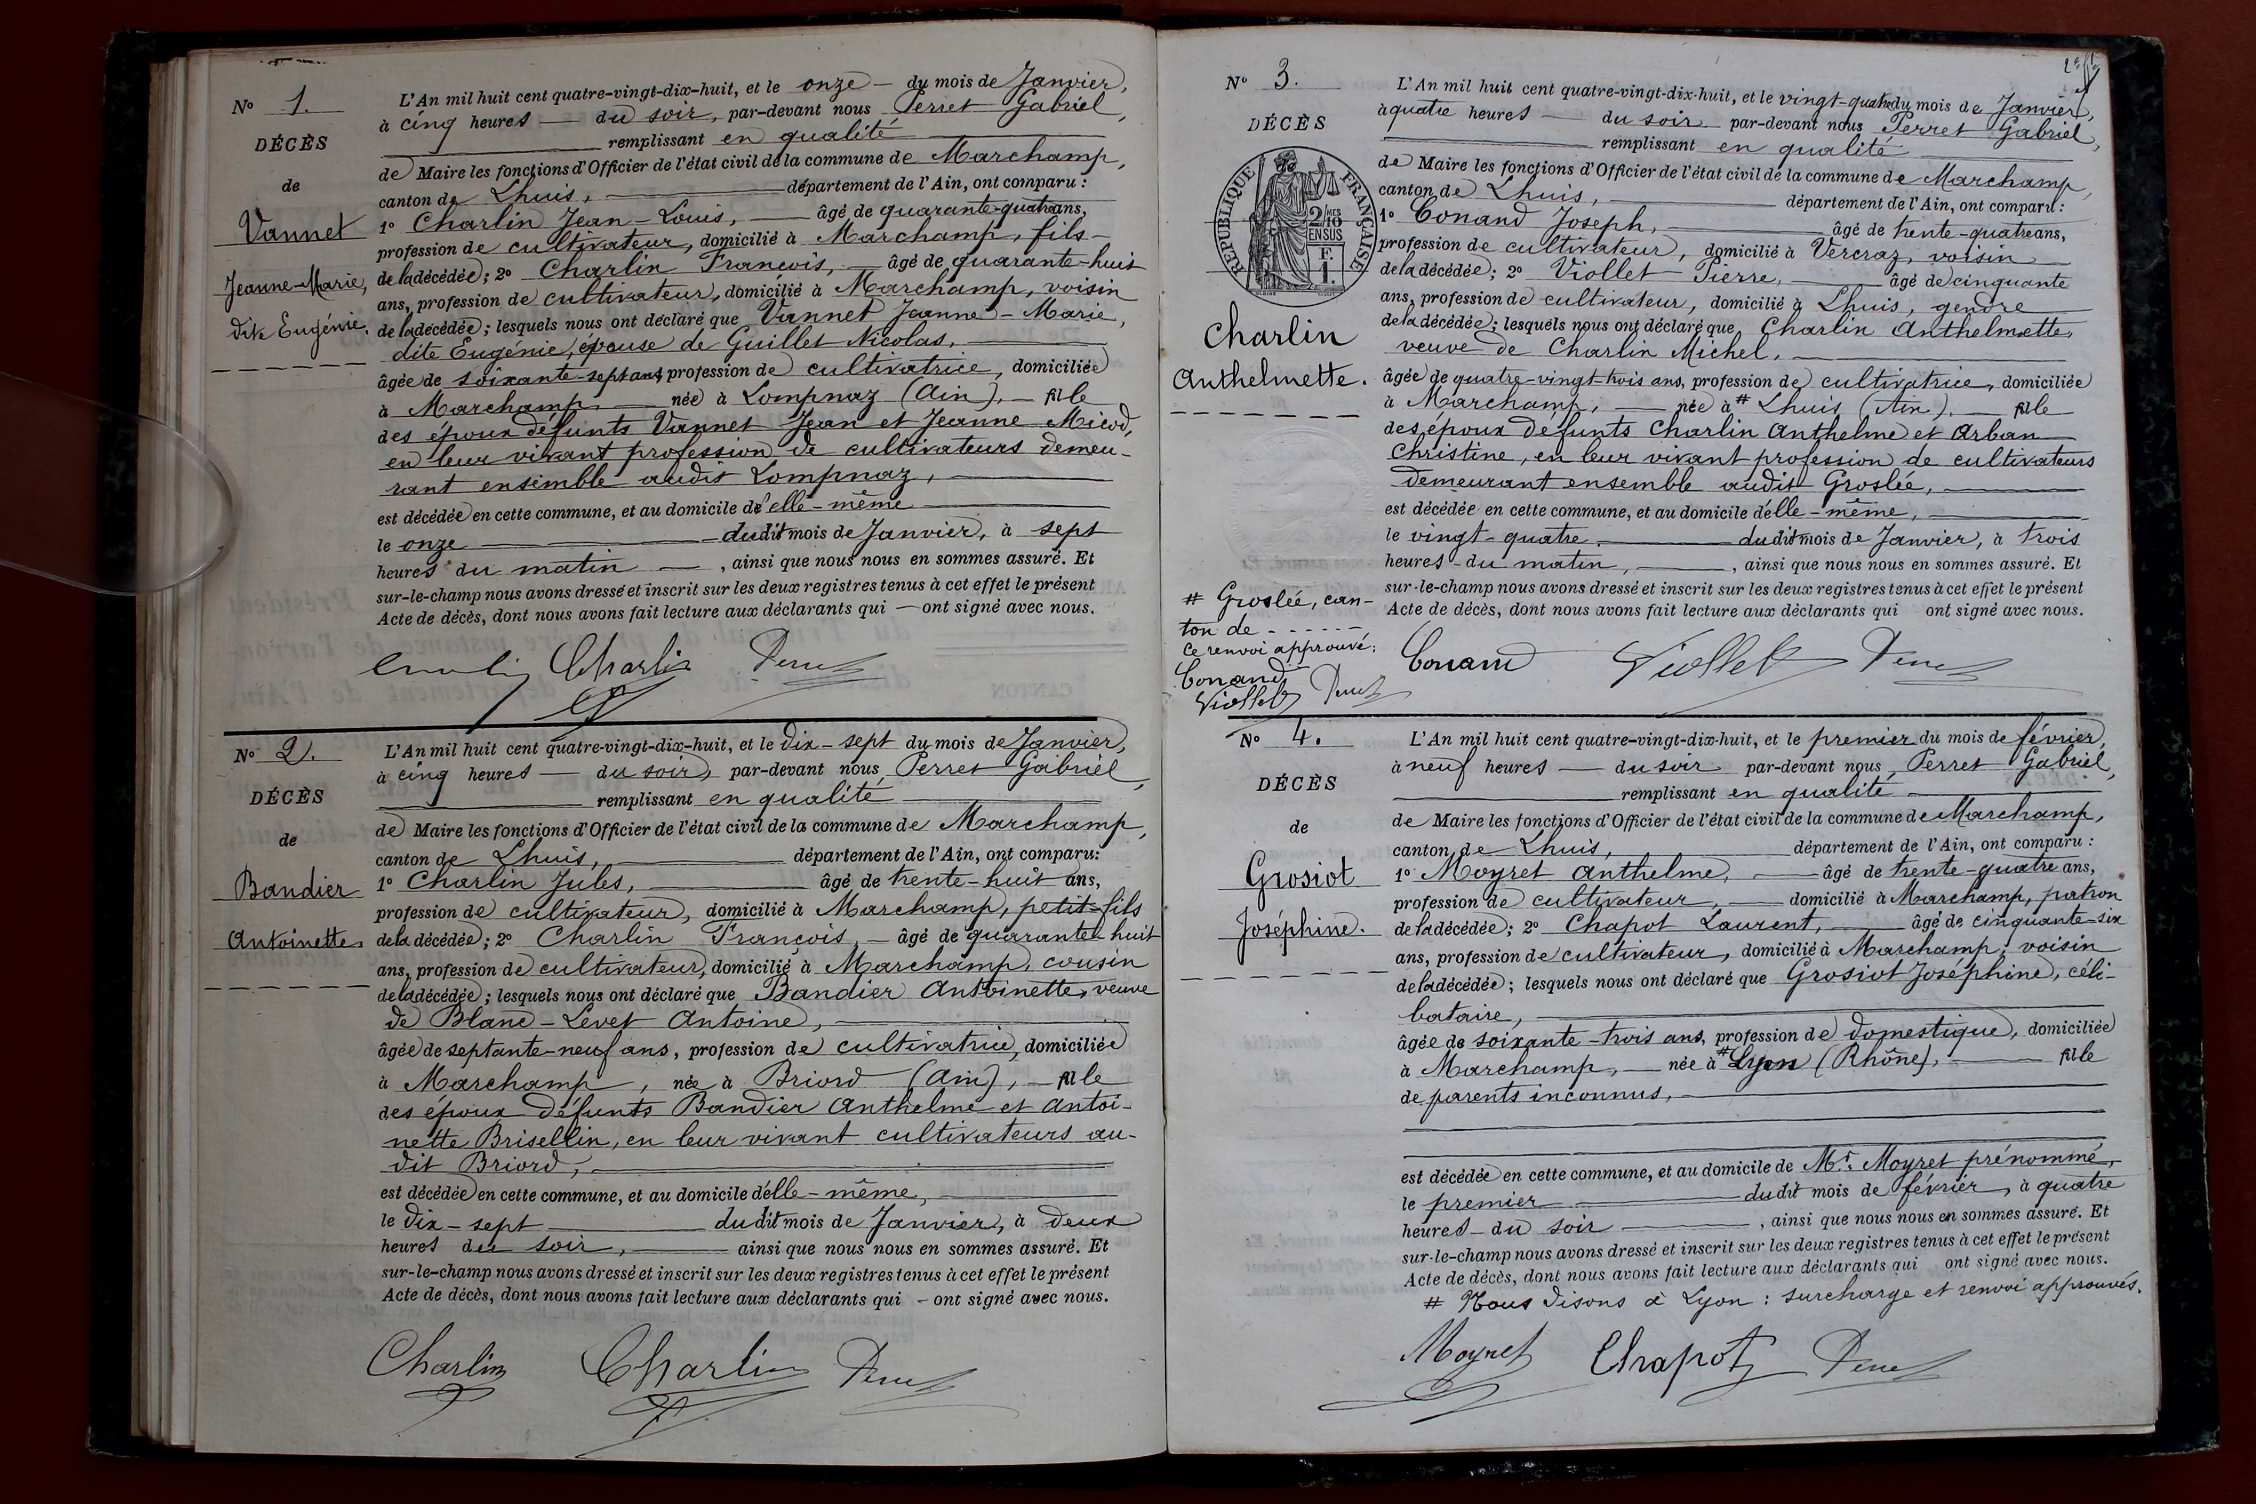 N° 1.
DÉCÈS
de
Vannet
Jeanne-Marie,
dite Eugénie.
L'An mil huit cent quatre-vingt-dix-huit, et le onze — du mois de Janvier,
à cinq heures — du soir, par-devant nous Perret Gabriel,
remplissant en qualité
de Maire les fonctions d'Officier de l'état civil de la commune de Marchamp,
canton de Lhuis, département de l'Ain, ont comparu :
1° Charlin Jean-Louis, — âgé de quarante-quatre ans,
profession de cultivateur, domicilié à Marchamp, fils
de la décédée; 2° Charlin François, — âgé de quarante-huit
ans, profession de cultivateur, domicilié à Marchamp, voisin
de la décédée; lesquels nous ont déclaré que Vannet Jeanne-Marie,
dite Eugénie, épouse de Guillet Nicolas,
âgée de soixante-sept ans, profession de cultivatrice, domiciliée
à Marchamp, — née à Lompnaz (Ain), — fille
des époux défunts Vannet Jean et Jeanne Micod,
en leur vivant profession de cultivateurs demeu-
rant ensemble audit Lompnaz,
est décédée en cette commune, et au domicile d'elle-même
le onze — dudit mois de Janvier, à sept
heures du matin — , ainsi que nous nous en sommes assuré. Et
sur-le-champ nous avons dressé et inscrit sur les deux registres tenus à cet effet le présent
Acte de décès, dont nous avons fait lecture aux déclarants qui — ont signé avec nous.
Charlin Perret
N° 2.
DÉCÈS
de
Bandier
Antoinette,
L'An mil huit cent quatre-vingt-dix-huit, et le dix-sept du mois de Janvier,
à cinq heures — du soir, par-devant nous Perret Gabriel,
remplissant en qualité
de Maire les fonctions d'Officier de l'état civil de la commune de Marchamp,
canton de Lhuis, département de l'Ain, ont comparu:
1° Charlin Jules, âgé de trente-huit ans,
profession de cultivateur, domicilié à Marchamp, petit-fils
de la décédée; 2° Charlin François, — âgé de quarante-huit
ans, profession de cultivateur, domicilié à Marchamp, cousin
de la décédée; lesquels nous ont déclaré que Bandier Antoinette, veuve
de Blanc-Levet Antoine,
âgée de septante-neuf ans, profession de cultivatrice, domiciliée
à Marchamp, née à Briord (Ain), — fille
des époux défunts Bandier Anthelme et Antoi-
nette Brisellin, en leur vivant cultivateurs au-
dit Briord,
est décédée en cette commune, et au domicile d'elle-même,
le dix-sept dudit mois de Janvier, à deux
heures du soir, ainsi que nous nous en sommes assuré. Et
sur-le-champ nous avons dressé et inscrit sur les deux registres tenus à cet effet le présent
Acte de décès, dont nous avons fait lecture aux déclarants qui — ont signé avec nous.
Charlin Charlin Perret
N° 3.
DÉCÈS
RÉPUBLIQUE FRANÇAISE
2/10 MES
EN SUS
F.
1.
Charlin
Anthelmette.
# Groslée, can-
ton de - - - - -
ce renvoi approuvé:
Conand
Viollet Perret
L'An mil huit cent quatre-vingt-dix-huit, et le vingt-quatre du mois de Janvier,
à quatre heures — du soir par-devant nous Perret Gabriel,
remplissant en qualité
de Maire les fonctions d'Officier de l'état civil de la commune de Marchamp,
canton de Lhuis, département de l'Ain, ont comparu :
1° Conand Joseph, âgé de trente-quatre ans,
profession de cultivateur, domicilié à Vercraz, voisin
de la décédée; 2° Viollet Pierre, âgé de cinquante
ans, profession de cultivateur, domicilié à Lhuis, gendre
de la décédée; lesquels nous ont déclaré que Charlin Anthelmette,
veuve de Charlin Michel,
âgée de quatre-vingt-trois ans, profession de cultivatrice, domiciliée
à Marchamp, — née à # Lhuis (Ain). — fille
des époux défunts Charlin Anthelme et Arban
Christine, en leur vivant profession de cultivateurs
demeurant ensemble audit Groslée,
est décédée en cette commune, et au domicile d'elle-même,
le vingt-quatre dudit mois de Janvier, à trois
heures du matin, , ainsi que nous nous en sommes assuré. Et
sur-le-champ nous avons dressé et inscrit sur les deux registres tenus à cet effet le présent
Acte de décès, dont nous avons fait lecture aux déclarants qui ont signé avec nous.
Conand Viollet Perret
N° 4.
DÉCÈS
de
Grosiot
Joséphine.
L'An mil huit cent quatre-vingt-dix-huit, et le premier du mois de février,
à neuf heures — du soir par-devant nous, Perret Gabriel,
remplissant en qualité
de Maire les fonctions d'Officier de l'état civil de la commune de Marchamp,
canton de Lhuis, département de l'Ain, ont comparu :
1° Moyret Anthelme, — âgé de trente-quatre ans,
profession de cultivateur, — domicilié à Marchamp, patron
de la décédée; 2° Chapot Laurent, — âgé de cinquante-six
ans, profession de cultivateur, domicilié à Marchamp, voisin
de la décédée; lesquels nous ont déclaré que Grosiot Joséphine, céli-
bataire,
âgée de soixante-trois ans, profession de domestique, domiciliée
à Marchamp, — née à # Lyon (Rhône), — fille
de parents inconnus,
est décédée en cette commune, et au domicile de Mr. Moyret prénommé,
le premier dudit mois de février, à quatre
heures du soir , ainsi que nous nous en sommes assuré. Et
sur-le-champ nous avons dressé et inscrit sur les deux registres tenus à cet effet le présent
Acte de décès, dont nous avons fait lecture aux déclarants qui ont signé avec nous.
# Nous disons à Lyon : surcharge et renvoi approuvés.
Moyret Chapot Perret